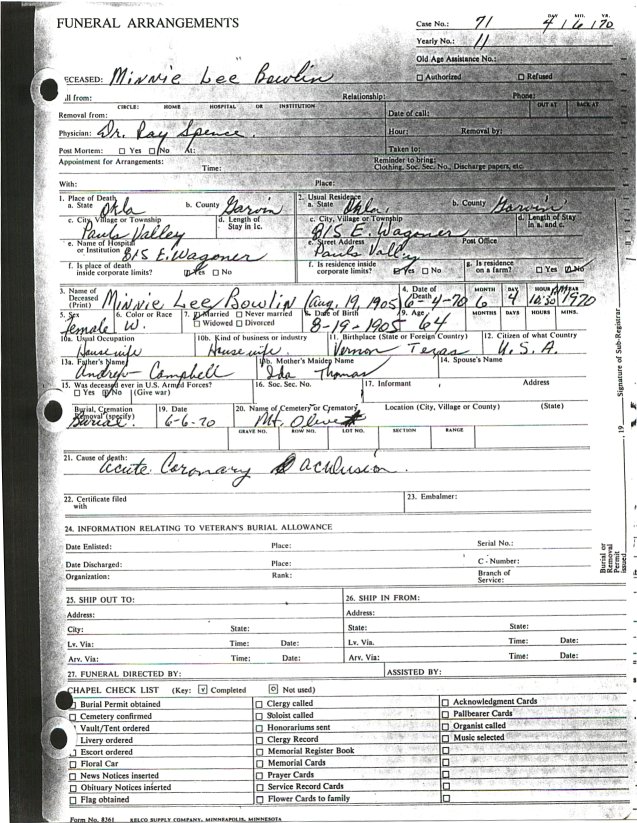 FUNERAL ARRANGEMENTS
Case No.: 71 DAY MO. YR. 4/6/70
Yearly No.: 11
Old Age Assistance No.:
☐ Authorized ☐ Refused
ECEASED: Minnie Lee Bowlin
ll from: Relationship: Phone:
CIRCLE: HOME HOSPITAL OR INSTITUTION OUT AT BACK AT
Removal from: Date of call:
Physician: Dr. Ray Spence. Hour: Removal by:
Post Mortem: ☐ Yes ☑ No At: Taken to:
Appointment for Arrangements: Reminder to bring:
Time: Clothing, Soc. Sec. No., Discharge papers, etc.
With: Place:
1. Place of Death 2. Usual Residence
a. State Okla b. County Garvin a. State Okla b. County Garvin
c. City, Village or Township d. Length of Stay in 1c. c. City, Village or Township d. Length of Stay in a. and c.
Pauls Valley 815 E. Wagoner
e. Name of Hospital or Institution 815 E. Wagoner e. Street Address Pauls Valley Post Office
f. Is place of death inside corporate limits? ☑ Yes ☐ No f. Is residence inside corporate limits? ☑ Yes ☐ No g. Is residence on a farm? ☐ Yes ☑ No
3. Name of Deceased (Print) Minnie Lee Bowlin (Aug. 19, 1905) 4. Date of Death 6-4-70 MONTH 6 DAY 4 HOUR 10:30 AM YEAR 1970
5. Sex female 6. Color or Race W. 7. ☑ Married ☐ Never married ☐ Widowed ☐ Divorced 8. Date of Birth 8-19-1905 9. Age 64 MONTHS DAYS HOURS MINS.
10a. Usual Occupation 10b. Kind of business or industry 11. Birthplace (State or Foreign Country) 12. Citizen of what Country
Housewife Housewife. Vernon Texas U.S.A.
13a. Father's Name 13b. Mother's Maiden Name 14. Spouse's Name
Andrew Campbell Ida Thomas
15. Was deceased ever in U.S. Armed Forces? 16. Soc. Sec. No. 17. Informant Address
☐ Yes ☑ No (Give war)
Burial, Cremation Removal (specify) 19. Date 20. Name of Cemetery or Crematory Location (City, Village or County) (State)
Burial. 6-6-70 Mt. Olivet
GRAVE NO. ROW NO. LOT NO. SECTION RANGE
21. Cause of death:
Acute Coronary Achlusion.
22. Certificate filed with 23. Embalmer:
24. INFORMATION RELATING TO VETERAN'S BURIAL ALLOWANCE
Date Enlisted: Place: Serial No.:
Date Discharged: Place: C - Number:
Organization: Rank: Branch of Service:
25. SHIP OUT TO: 26. SHIP IN FROM:
Address: Address:
City: State: State: State:
Lv. Via: Time: Date: Lv. Via. Time: Date:
Arv. Via: Time: Date: Arv. Via: Time: Date:
27. FUNERAL DIRECTED BY: ASSISTED BY:
CHAPEL CHECK LIST (Key: [v] Completed [o] Not used)
☐ Burial Permit obtained ☐ Clergy called ☐ Acknowledgment Cards
☐ Cemetery confirmed ☐ Soloist called ☐ Pallbearer Cards
☐ Vault/Tent ordered ☐ Honorariums sent ☐ Organist called
Livery ordered ☐ Clergy Record ☐ Music selected
☐ Escort ordered ☐ Memorial Register Book ☐
☐ Floral Car ☐ Memorial Cards ☐
☐ News Notices inserted ☐ Prayer Cards ☐
☐ Obituary Notices inserted ☐ Service Record Cards ☐
☐ Flag obtained ☐ Flower Cards to family ☐
Form No. 8361 KELCO SUPPLY COMPANY, MINNEAPOLIS, MINNESOTA
Signature of Sub-Registrar
, 19
Burial or Removal Permit issued